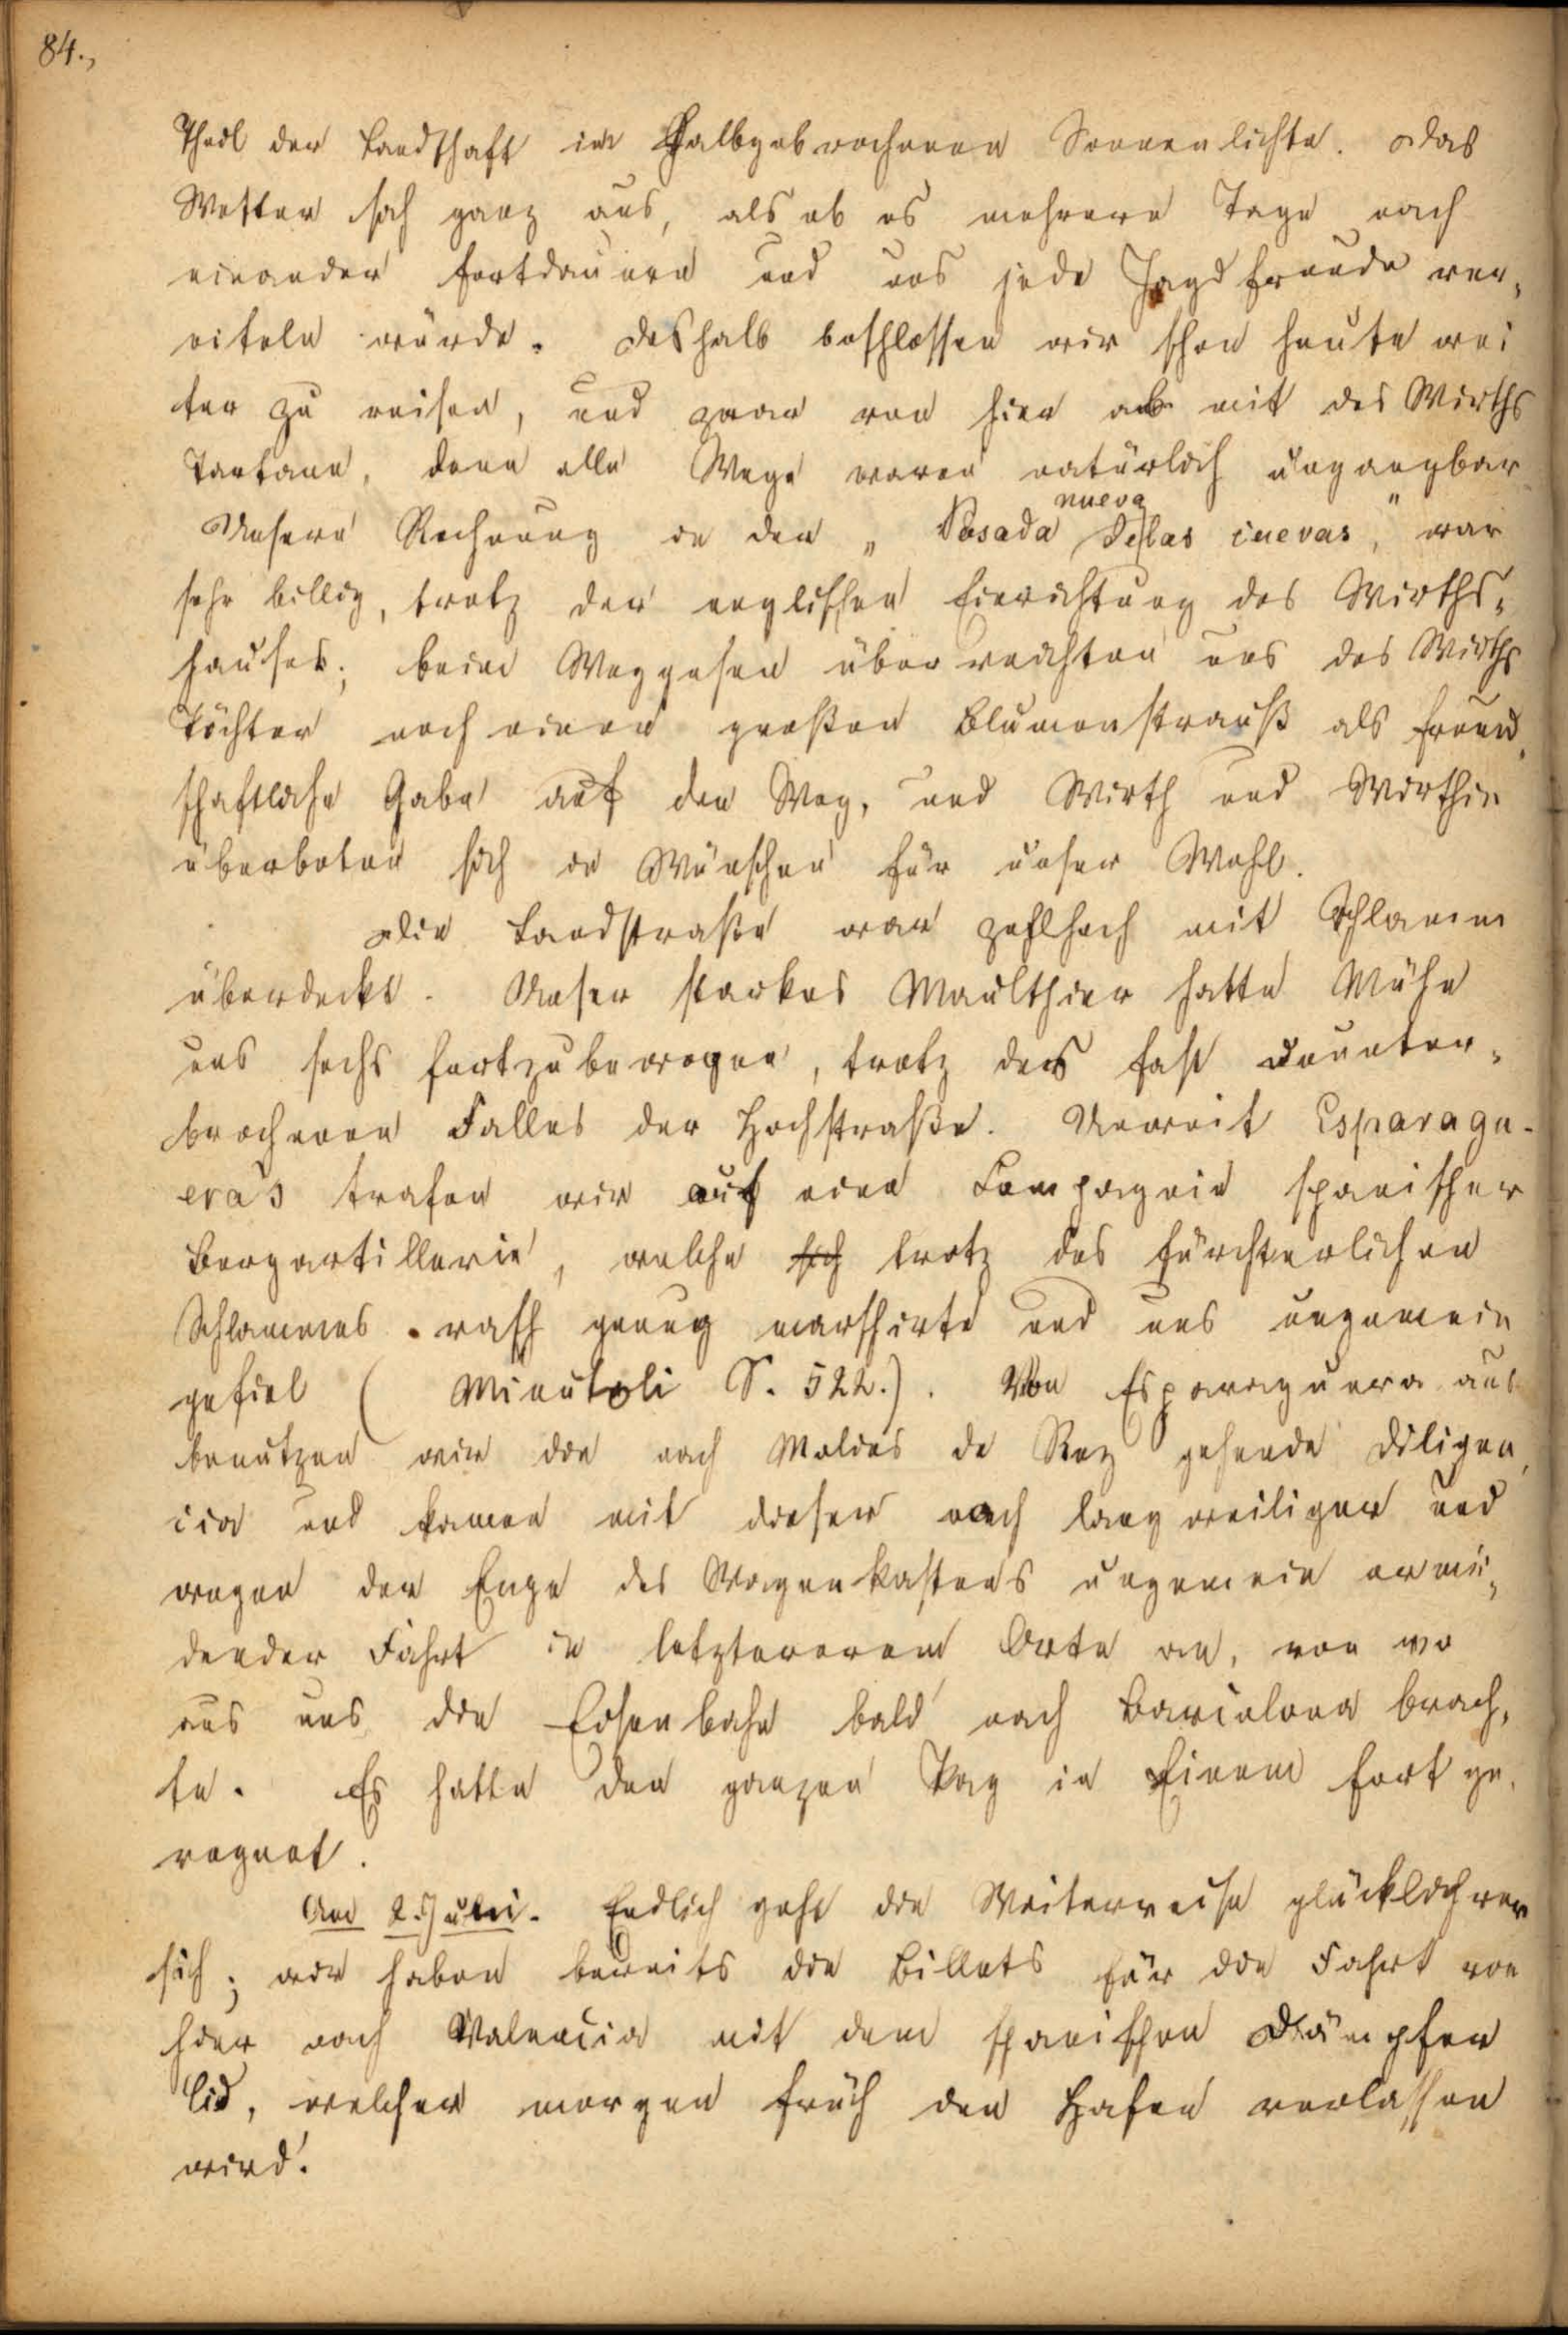 84.,
Theil der Landschaft im Halbgebrochenen Sonnenlichte. Das
Wetter sah ganz aus, als ob es mehrere Tage nach
einander fortdauern und uns jede Jagdfreude ver„
eiteln würde. Deshalb beschlossen wir schon heute wei
ter zu reisen, und zwar von hier ab mit des Wirths
Tartane, denn alle Wege waren natürlich ungangbar
nueva
Unsere Rechnung in der „Posada de las cuevas", war
sehr billig, trotz der englischen Einrichtung des Wirths„
hauses; beim Weggehen überreichten uns des Wirths
Töchter noch einen großen Blumenstrauß als freund„
schaftliche Gabe auf den Weg, und Wirth und Wirthin
überboten sich in Wünschen für unser Wohl.
Die Landstraße war zollhoch mit Schlamm
überdeckt. Unser starkes Maulthier hatte Mühe
uns sechs fortzubewegen, trotz des fast ununter„
brochenen Falles der Hochstraße. Unweit Esparagu-
era's trafen wir auf eine Compagnie spanischer
Bergartillerie, welche sich trotz des fürchterlichen
Schlammes rasch genug marschirte und uns ungemein
gefiel (Minutoli S. 522.). Von Esparaguera aus
benutzen wir die nach Molins de Rey gehende Diligen„
cia und kamen mit dieser nach langweiliger und
wegen der Enge des Wagenkastens ungemein ermü„
dender Fahrt in letztererem Orte an, von wo
aus uns die Eisenbahn bald nach Barcelona brach„
te. Es hatte den ganzen Tag in Einem fort ge„
regnet.
Am 2. Juni. Endlich geht die Weiterreise glücklich vor
sich; wir haben bereits die Billets für die Fahrt von
hier nach Valencia mit dem spanischen Dampfer
Cid, welcher morgen früh den Hafen verlassen
wird.